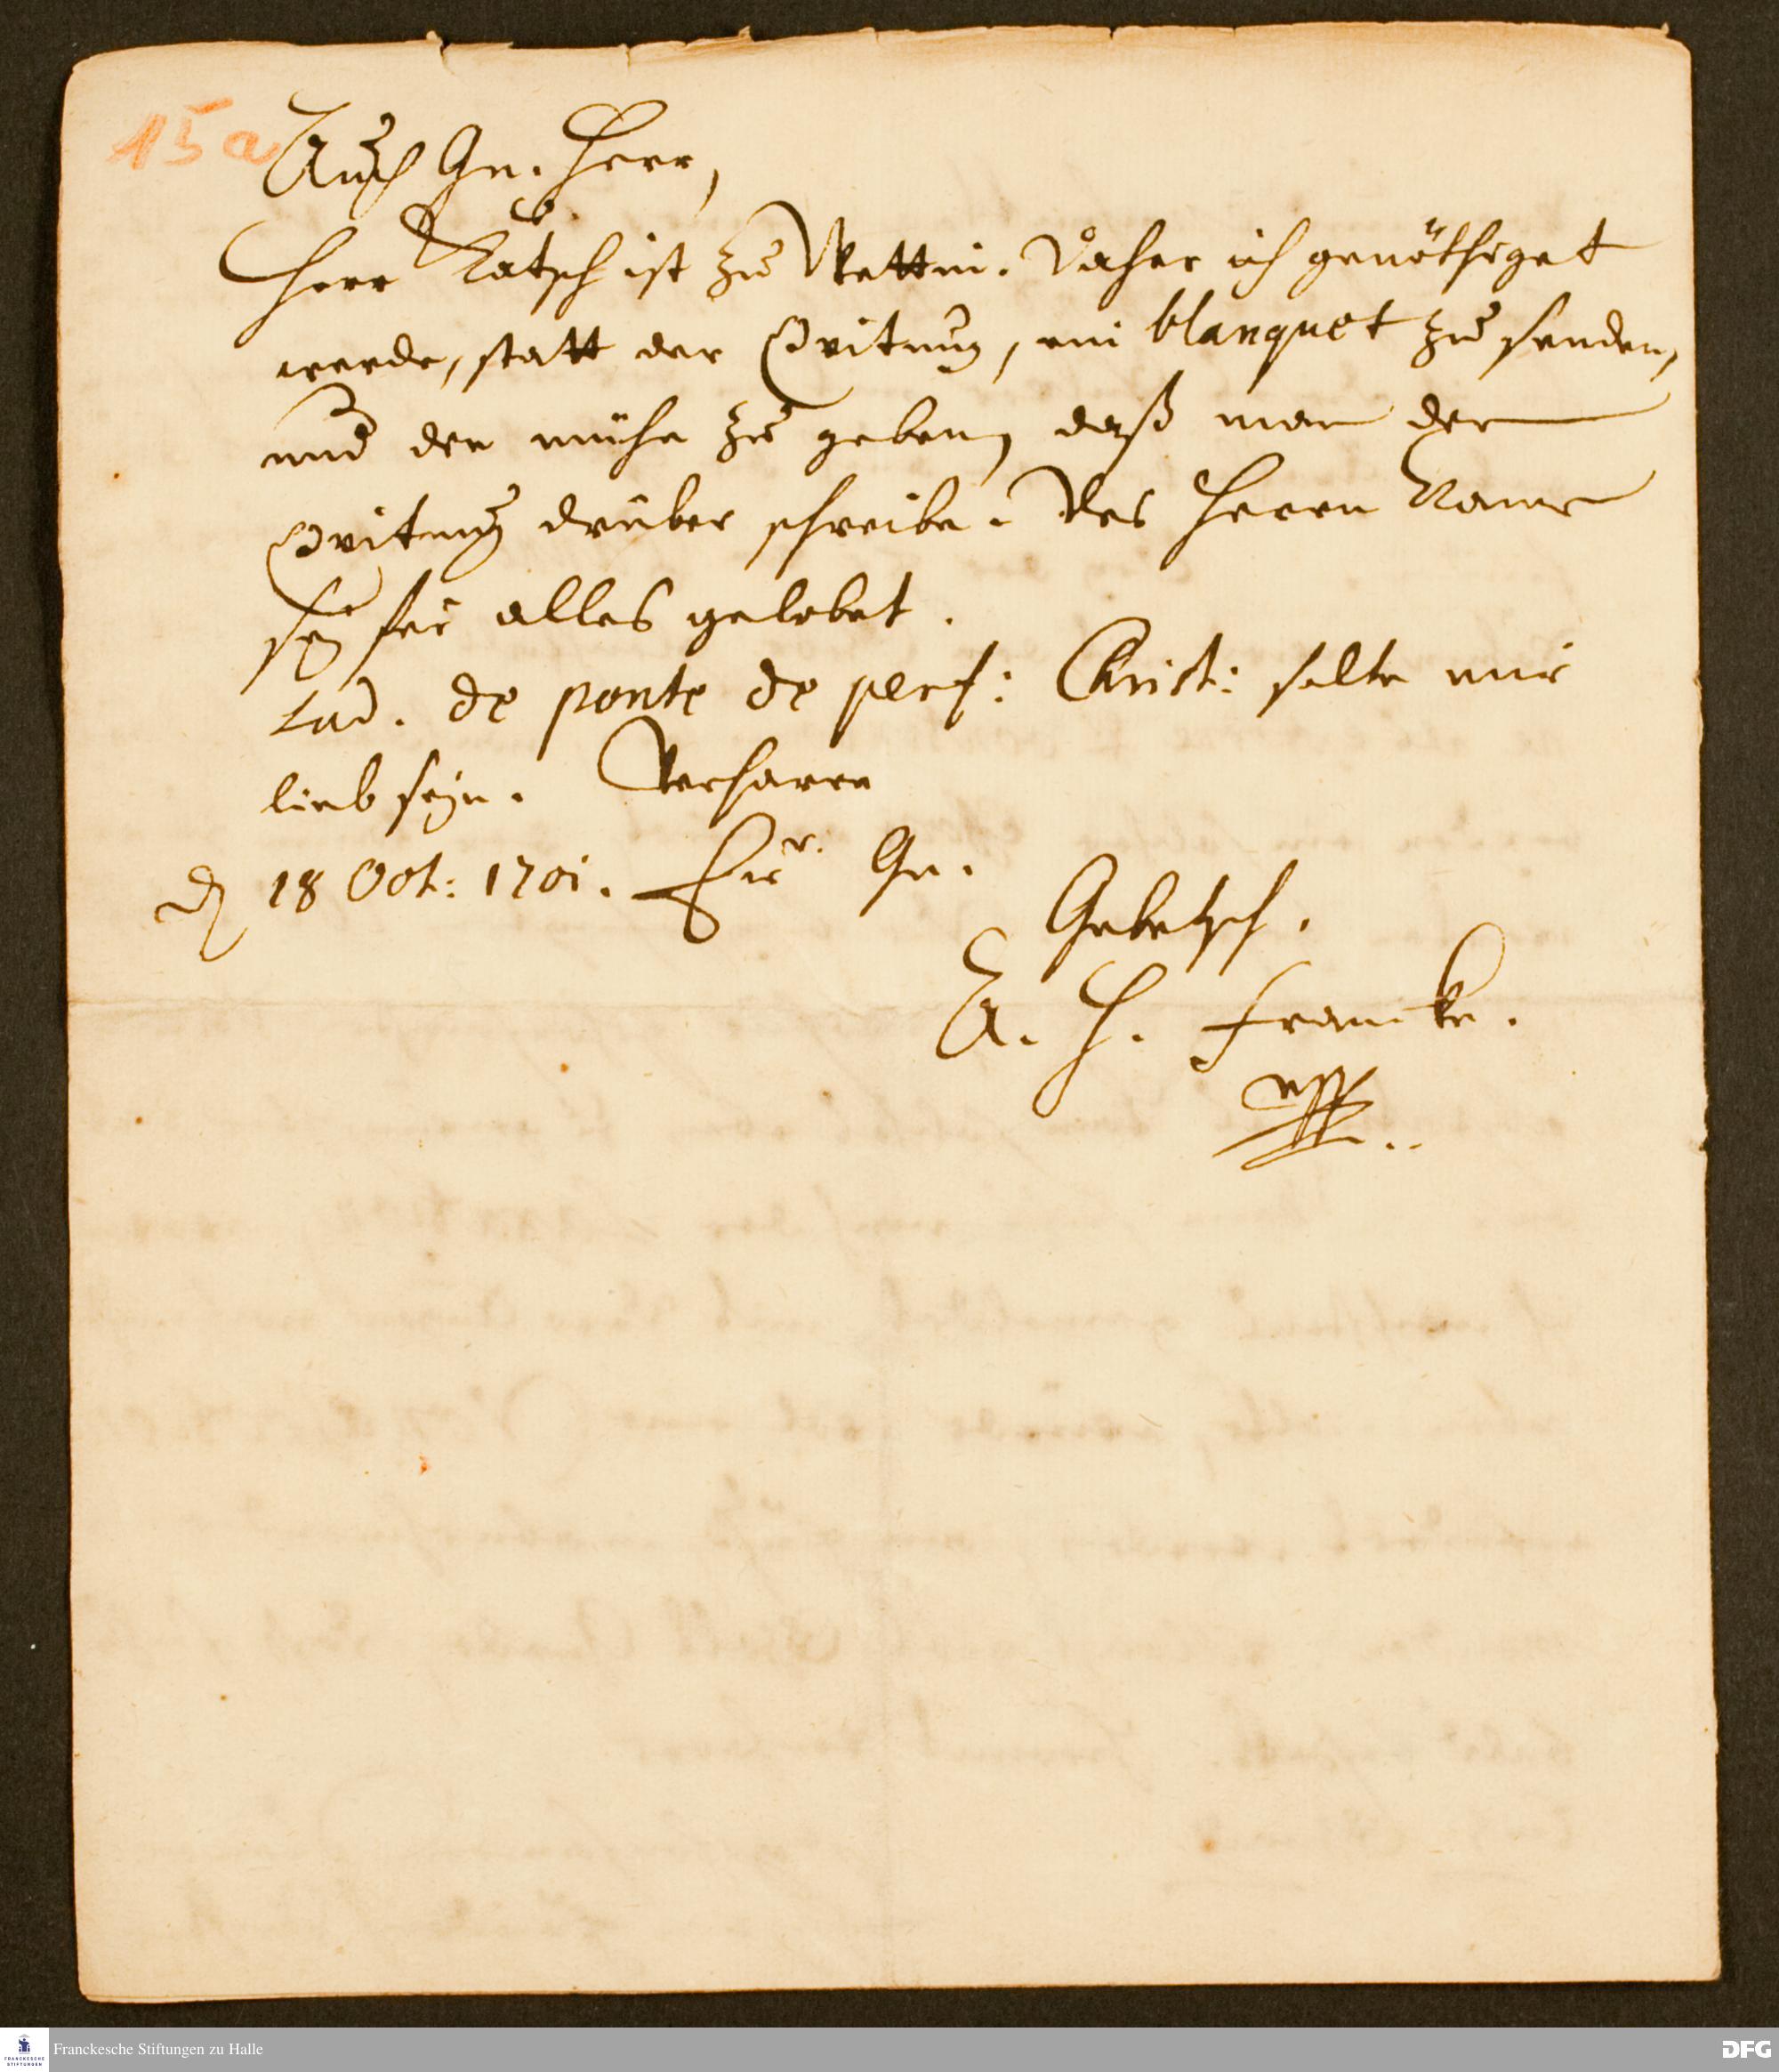 15a
Auch Gn. Herr,
Herr Rätsch ist zu Wettin. Daher ich genöthiget
werde, statt der Qvitung, ein blanquet zu senden,
und der mühe zu geben, daß man der
Qvitung drüber schreibe. Des Herrn Name
sey für alles gelobet.
Lud. de ponte de perf: Christ: solte mir
lieb seyn. Verharre
18 Oct: 1701. Eur. Gn.
Gebetsch.
A. H. Francke.
Franckesche Stiftungen zu Halle
DFG